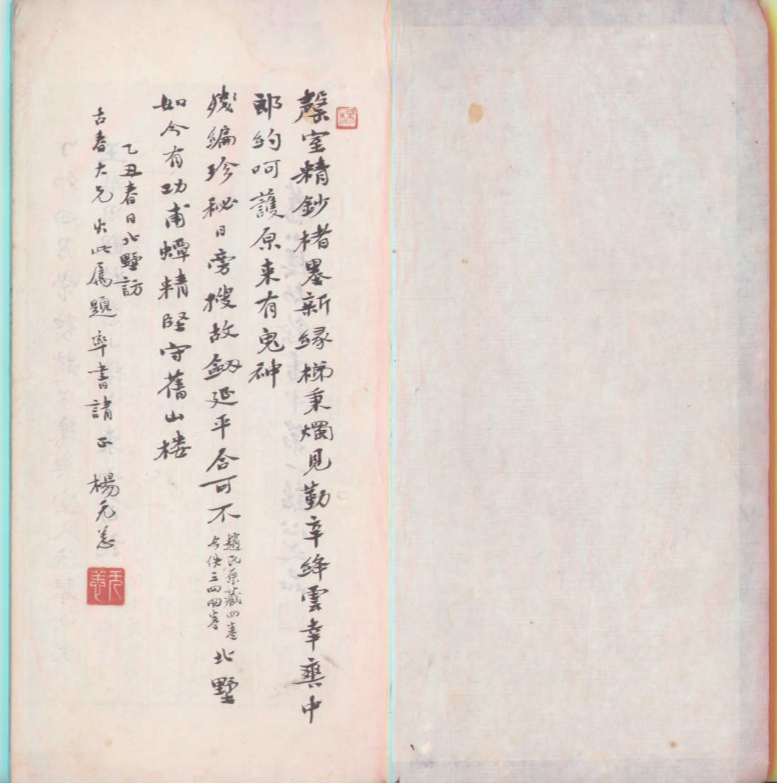 罄室精鈔楮墨新緣梯秉燭見勤辛絳雲幸與中
郎約呵護原來有鬼神
殘編珍秘日旁搜故劍延平合可不趙氏原藏四卷
占佚三四兩卷北墅
如今有功甫蟫精堅守舊山樓
乙丑春日北墅訪
古春大兄出此屬題率書請正 楊元